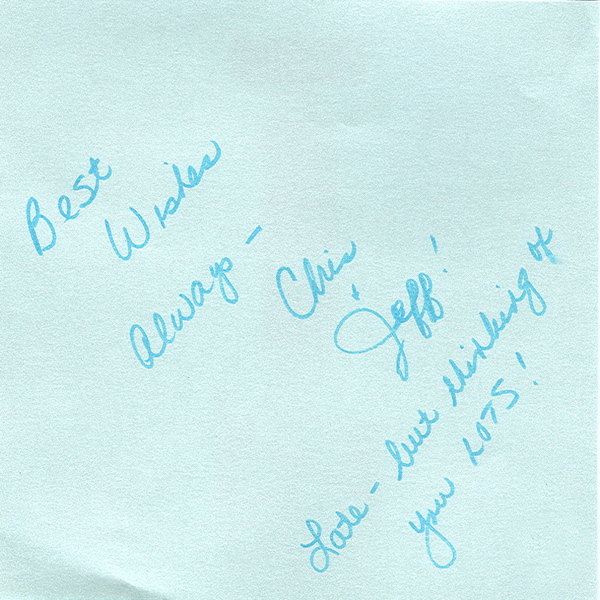 Best
Wishes
Always -
Chris
& Jeff!
Late - but thinking of
you LOTS!